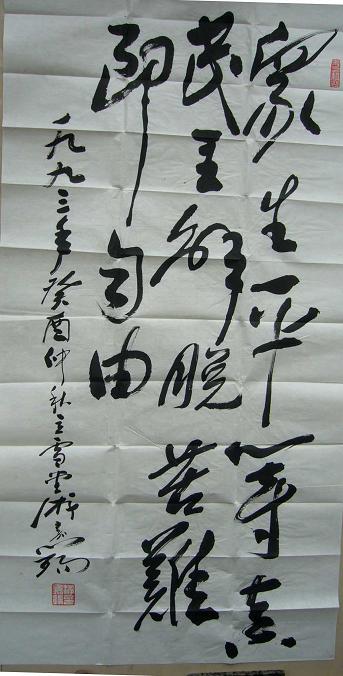 眾生平等真
民主解脫苦難
即自由
一九九三年癸酉仲秋立雪堂